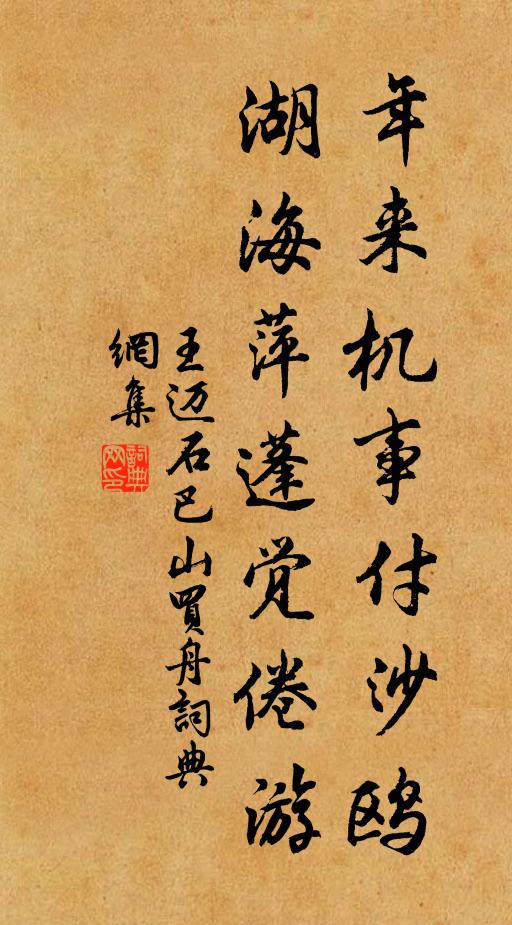 年来机事付沙鸥
湖海萍蓬觉倦游
王迈石巴山買舟詞典
網集
詞典
网印